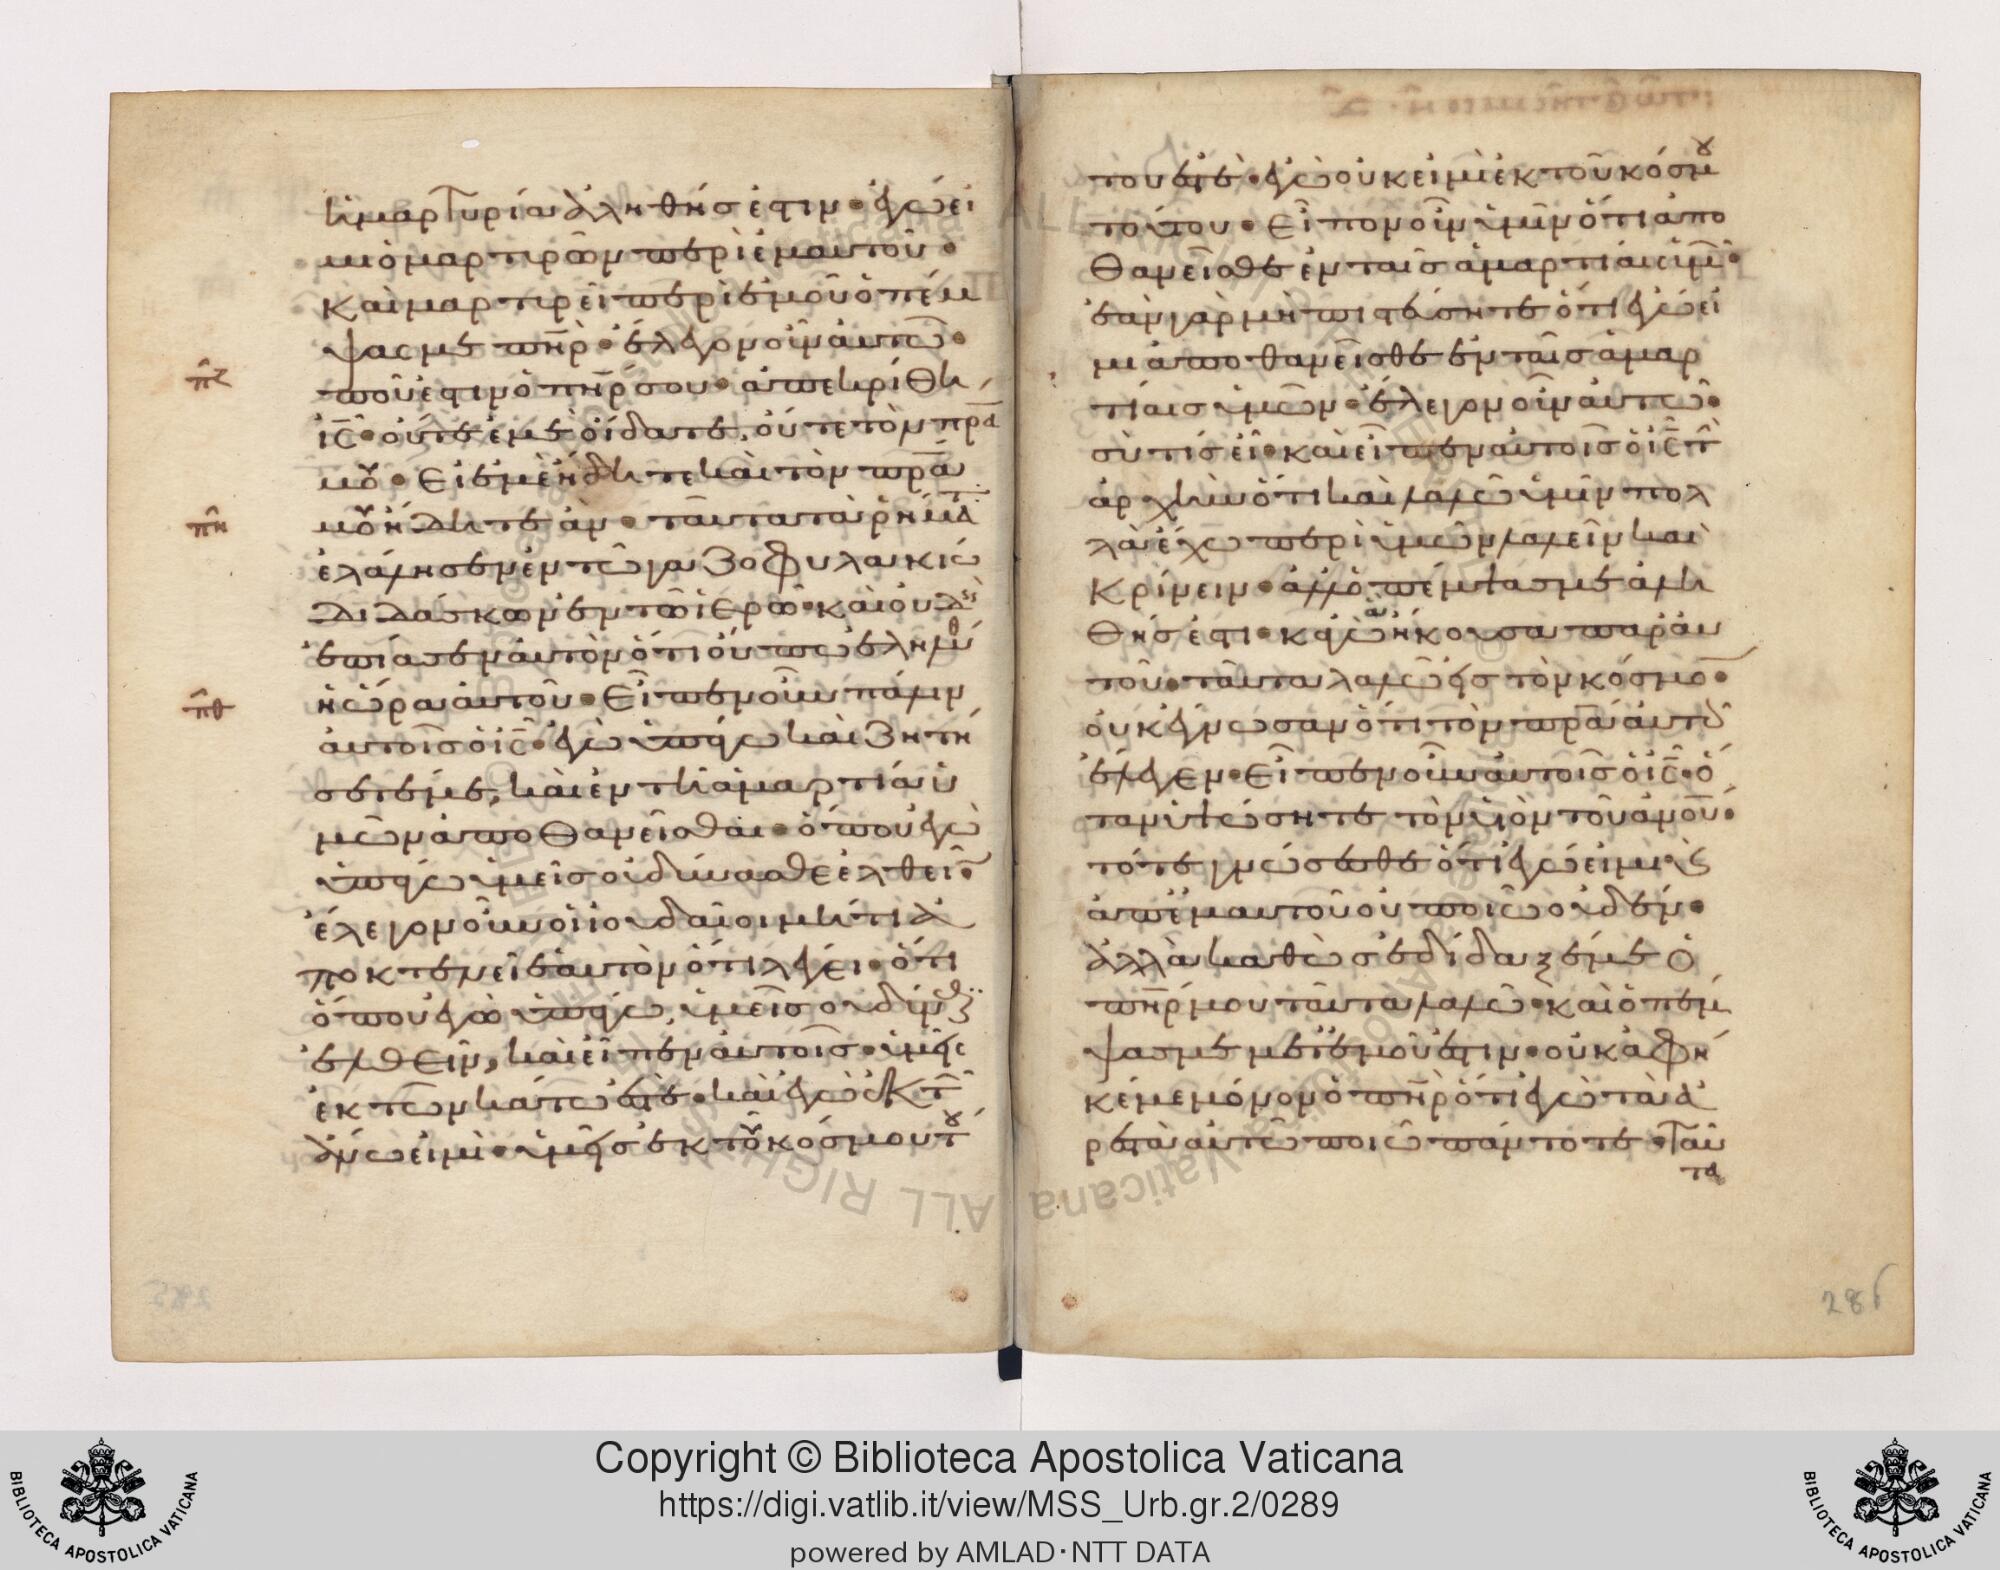 ἡ μαρτυρία ἀληθής ἐστιν· ἐγώ εἰ
μι ὁ μαρτυρῶν περὶ ἐμαυτοῦ·
καὶ μαρτυρεῖ περὶ ἐμοῦ ὁ πέμ
ψας με πηρ· ἔλεγον οὖν αὐτῷ·
πζ
ποῦ ἐστιν ὁ πηρ σου· ἀπεκρίθη
ις· οὔτε ἐμὲ οἴδατε, οὔτε τὸν πρα
μου· εἰ ἐμὲ ἤδητε καὶ τὸν πρα
πη
μου ἤδητε ἄν· ταῦτα τὰ ῥήματ
ἐλάλησεν ἐν τῷ γαζοφυλακίῳ
διδάσκων ἐν τῷ ἱερῷ· καὶ οὐδεὶ
ἐπίασεν αὐτὸν ὅτι οὔπω ἐλήλυθ
πθ
ἡ ὥρα αὐτοῦ· εἶπεν οὖν πάλιν
αὐτοῖς ὁ ις· ἐγὼ ὑπάγω καὶ ζητή
σετέ με, καὶ ἐν τῇ ἁμαρτίᾳ ὑ
μῶν ἀποθανεῖσθαι· ὅπου ἐγὼ
ὑπάγω ὑμεῖς οὐ δύνασθε ἐλθεῖν·
ἔλεγον οὖν οἱ ἰουδαῖοι μήτι ἀ
ποκτενεῖ ἑαυτὸν ὅτι λέγει· ὅτι
ὅπου ἐγὼ ὑπάγω, ὑμεῖς οὐ δύνασθε
ἐλθεῖν, καὶ εἶπεν αὐτοῖς· ὑμεῖς
ἐκ τῶν κάτω ἐστὲ· καὶ ἐγὼ ἐκ τῶν
ἄνω εἰμὶ· ὑμεῖς ἐκ τοῦ κόσμου τού
του ἐστὲ· ἐγὼ οὐκ εἰμὶ ἐκ τοῦ κόσμου
τούτου· εἶπον οὖν ὑμῖν ὅτι ἀπο
θανεῖσθε ἐν ταῖς ἁμαρτίαις ὑμῶν·
ἐὰν γὰρ μὴ πιστεύσητε ὅτι ἐγώ εἰ
μι ἀποθανεῖσθε ἐν ταῖς ἁμαρ
τίαις ὑμῶν· ἔλεγον οὖν αὐτῷ·
σὺ τίς εἶ· καὶ εἶπεν αὐτοῖς ὁ ις τὴν
ἀρχὴν ὅτι καὶ λαλῶ ὑμῖν πολ
λὰ ἔχω περὶ ὑμῶν λαλεῖν καὶ
κρίνειν· ἀλλ' ὁ πέμψας με ἀλη
θής ἐστι· κἀγὼ ἃ ἤκουσα παρ' αὐ
τοῦ· ταῦτα λαλῶ εἰς τὸν κόσμον·
οὐκ ἔγνωσαν ὅτι τὸν πρα αὐτοῦ
ἔλεγεν· εἶπεν οὖν αὐτοῖς ὁ ις· ὅ
ταν ὑψώσητε τὸν υἱὸν τοῦ ανου·
τότε γνώσεσθε ὅτι ἐγώ εἰμι καὶ
ἀπ' ἐμαυτοῦ οὐ ποιῶ οὐδέν·
ἀλλὰ καθὼς ἐδίδαξέ με ὁ
πηρ μου ταῦτα λαλῶ· καὶ ὁ πέμ
ψας με μετ' ἐμοῦ ἐστιν· οὐκ ἀφῆ
κέ με μόνον ὁ πηρ ὅτι ἐγὼ τὰ ἀ
ρεστὰ αὐτῷ ποιῶ πάντοτε· ταῦ
τα
286
Copyright © Biblioteca Apostolica Vaticana
https://digi.vatlib.it/view/MSS_Urb.gr.2/0289
powered by AMLAD·NTT DATA
BIBLIOTECA APOSTOLICA VATICANA
BIBLIOTECA APOSTOLICA VATICANA